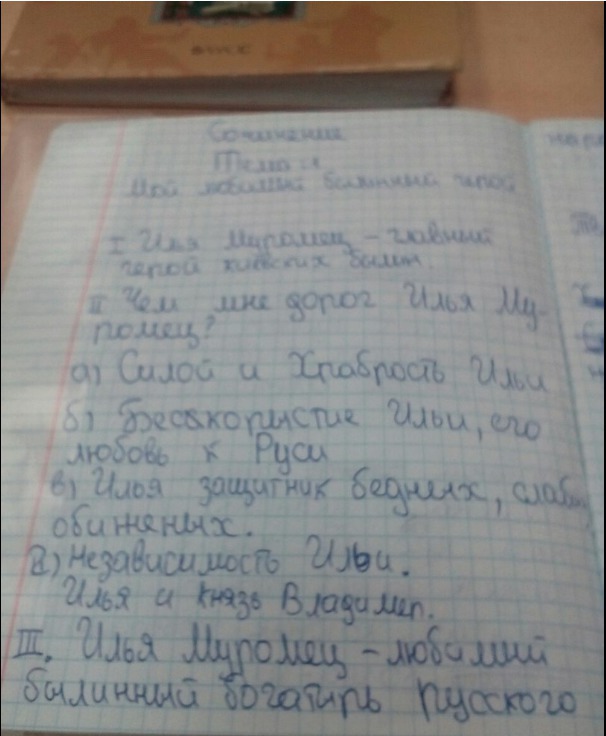 Сочинение
Тема:
Мой любимый былинный герой
I Илья Муромец - главный
герой киевских былин.
II Чем мне дорог Илья Му-
ромец?
а) Силой и Храбрость Ильи
б) Бескорыстие Ильи, его
любовь к Руси
в) Илья защитник бедных, слабых
обиженых.
г) Независимость Ильи.
Илья и князь Владимир.
III. Илья Муромец - любимый
былинный богатырь русского